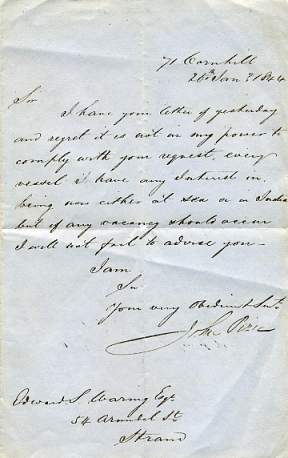 71 Cornhill
26th Jany 1844
Sir
I have your letter of yesterday
and regret it is not in my power to
comply with your request, every
vessel I have any Interest in,
being now either at sea or in India
but if any vacancy should occur
I will not fail to advise you –
I am
Sir
Your very Obedient Servt
John Pirie
Edward S Waring Esqr
54 Arundel St
Strand